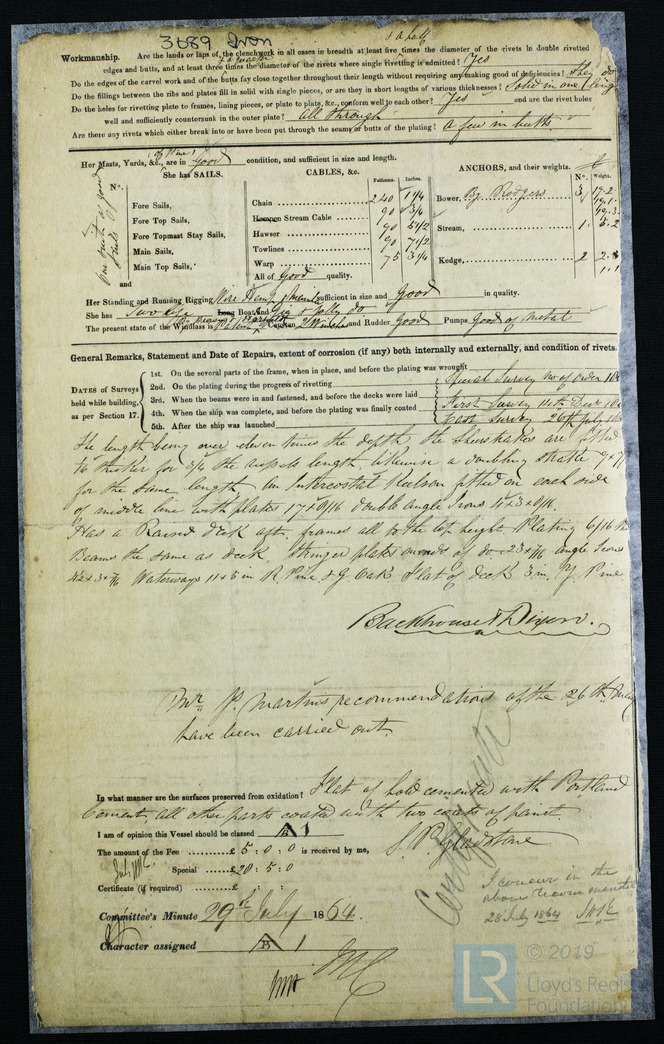 3689 Iron
& a half
Workmanship. Are the lands or laps of the clenchwork in all cases in breadth at least five times the diameter of the rivets in double rivetted
& a quarter
edges and butts, and at least three times the diameter of the rivets where single rivetting is admitted? Yes
Do the edges of the carvel work and of the butts fay close together throughout their length without requiring any making good of deficiencies? they do
Do the fillings between the ribs and plates fill in solid with single pieces, or are they in short lengths of various thicknesses? Solid in one
Do the holes for rivetting plate to frames, lining pieces, or plate to plate, &c., conform well to each other? Yes and are the rivet holes
well and sufficiently countersunk in the outer plate? all through
Are there any rivets which break into or have been put through the seams or butts of the plating? A few in butts.
Her Masts, Yards, &c., are in good condition, and sufficient in size and length.
She has SAILS. CABLES, &c. ANCHORS, and their weights.
N°. Fathoms. Inches. N°. Weight.
One suit of good
Fore Sails, Chain 240 1 1/4 Bower, By Rodgers 3
Fore Top Sails, Hempen Stream Cable 90 3/4
Fore Topmast Stay Sails, Hawser 90 5 1/2 Stream, 1
Main Sails, Towlines 90 7 1/2
Main Top Sails, Warp 75 3 1/4 Kedge, 2
and All of good quality.
Her Standing and Running Rigging Wire Hemp & Manila sufficient in size and good in quality.
She has Two life Long Boat and Gig & Jolly do
The present state of the Windlass is Patent Capstan 2 Winches and Rudder Good Pumps Good of Metal
General Remarks, Statement and Date of Repairs, extent of corrosion (if any) both internally and externally, and condition of rivets.
DATES of Surveys held while building, as per Section 17.
1st. On the several parts of the frame, when in place, and before the plating was wrought
2nd. On the plating during the progress of rivetting Special Survey No of Order
3rd. When the beams were in and fastened, and before the decks were laid
4th. When the ship was complete, and before the plating was finally coated First Survey 11th Decr
5th. After the ship was launched Last Survey 26th July
The length being over eleven times the depth the Sheerstrakes are fitted
1/16 thicker for 3/4 the vessels length, likewise a doubling strake
for the same length. An Intercostal Keelson fitted on each side
of middle line with plates 17 x 9/16 double angle Irons 4 x 3 x 9/16.
Has a Raised deck aft, frames all to the top height Plating 6/16 th
Beams the same as deck. Stringer plates on ends of do 23 x 7/16 angle Irons
4 1/2 x 3 x 7/16 Waterways 11 x 5 in R. Pine & G. Oak Flat of deck 3 in. Y. Pine
Backhouse & Dixon.
Mr P. Martins recommendations of the 26th July
have been carried out.
In what manner are the surfaces preserved from oxidation? Flat of hold cemented with Portland
Cement, all other parts coated with two coats of paint
I am of opinion this Vessel should be classed A 1
The amount of the Fee ......£ 5 : 0 : 0 is received by me,
Special ......£ 20 : 5 : 0
Certificate (if required) ......£ : :
Gladstone
I concur in the
above recommendation
28 July 1864
Committee's Minute 29th July 1864.
Character assigned A 1
© 2019
LR
Lloyd's Register
Foundation